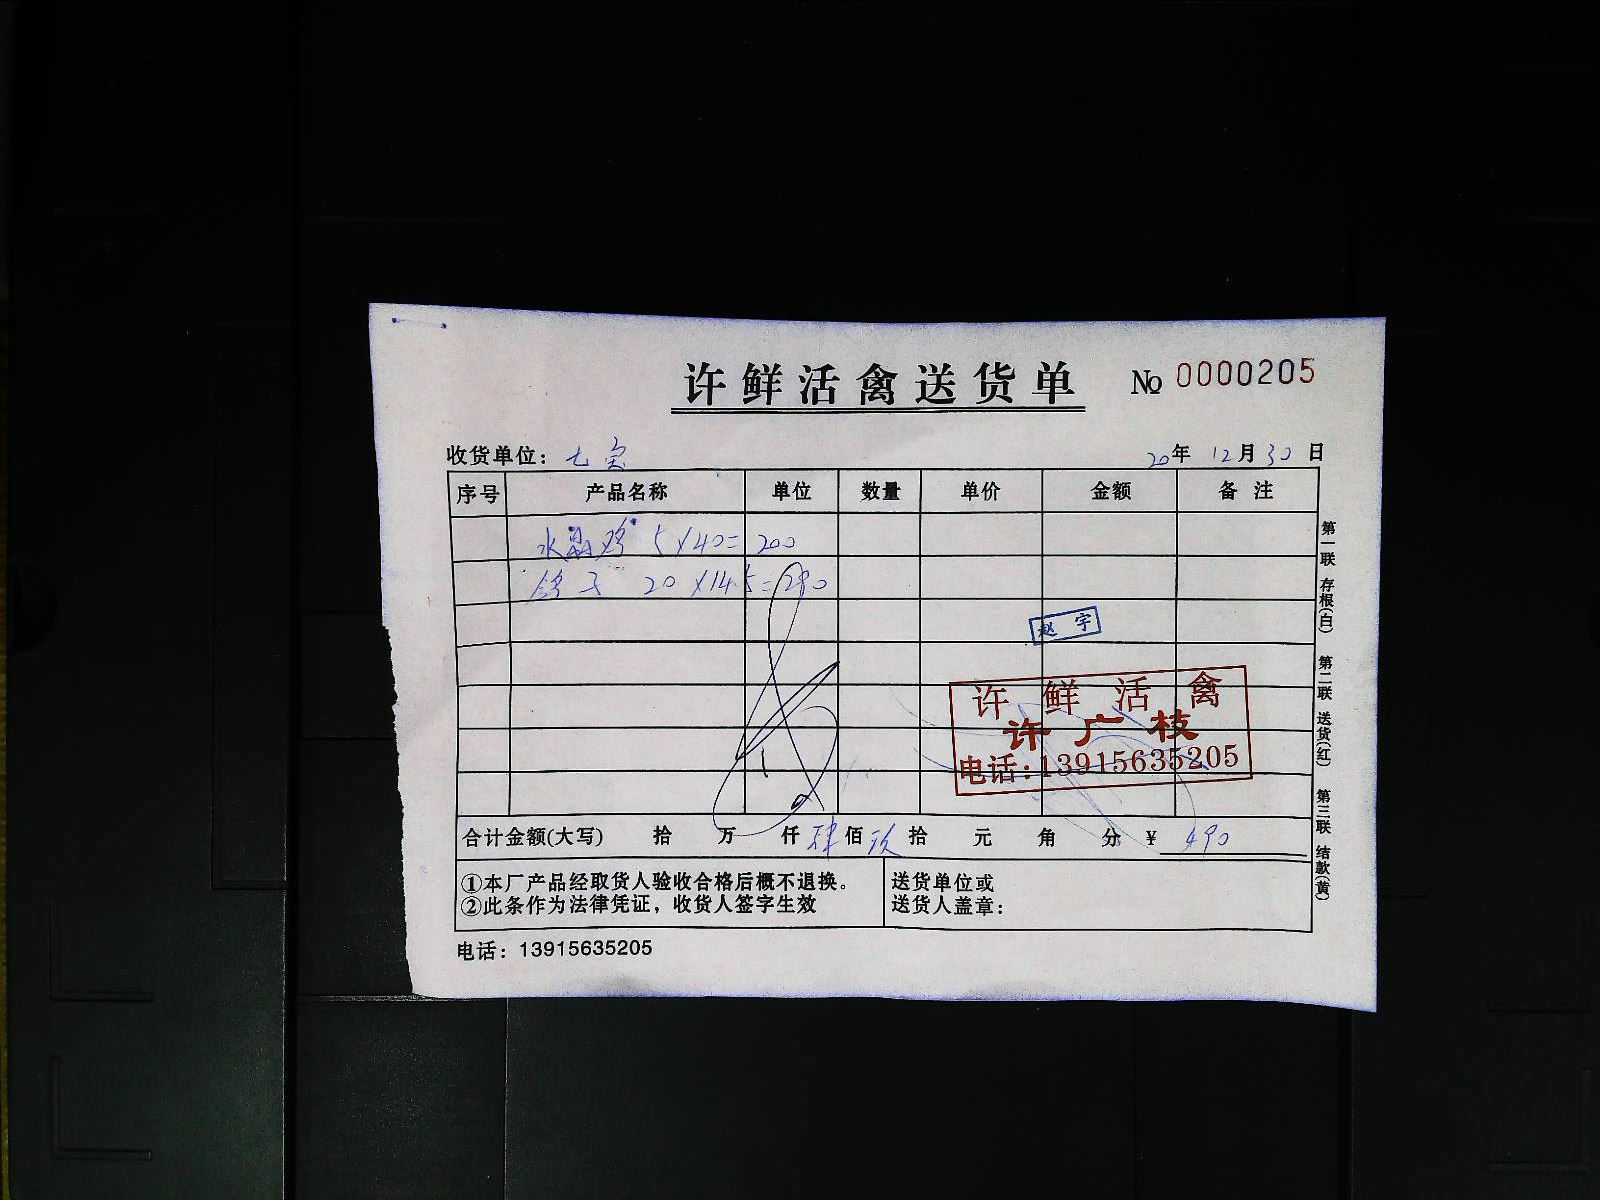 许鲜活禽送货单 No 0000205
收货单位: 七宝 20年 12月 30日
序号 产品名称 单位 数量 单价 金额 备注
水晶鸡 5×40=200
鸽子 20×14.5=290
赵宇
许鲜活禽
许广枝
电话:13915635205
合计金额(大写) 拾 万 仟 肆 佰 玖 拾 元 角 分 ¥ 490
①本厂产品经取货人验收合格后概不退换。
②此条作为法律凭证，收货人签字生效
送货单位或
送货人盖章:
电话: 13915635205
第一联 存根(白) 第二联 送货(红) 第三联 结款(黄)